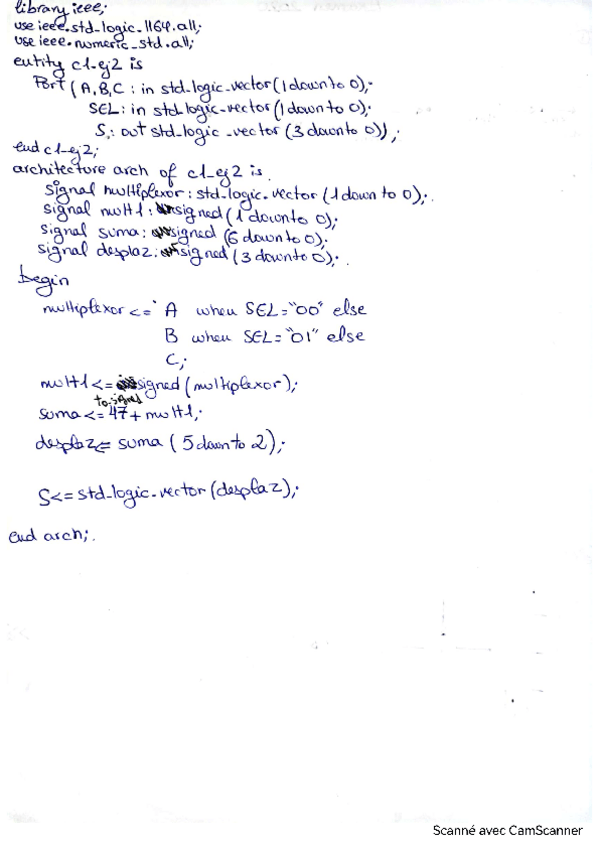 library ieee;
use ieee.std_logic_1164.all;
use ieee.numeric_std.all;
entity c1_ej2 is
Port (A,B,C : in std_logic_vector(1 downto 0);
SEL: in std_logic_vector(1 downto 0);
S: out std_logic_vector (3 downto 0));
end c1_ej2;
architecture arch of c1_ej2 is
signal multiplexor: std_logic_vector (1 downto 0);
signal mult1: signed (1 downto 0);
signal suma: signed (6 downto 0);
signal desplaz: signed (3 downto 0);
begin
multiplexor <= A when SEL="00" else
B when SEL="01" else
C;
mult1 <= signed (multiplexor);
to_signed
suma <= 47 + mult1;
desplaz <= suma (5 downto 2);
S <= std_logic_vector (desplaz);
end arch;
Scanné avec CamScanner